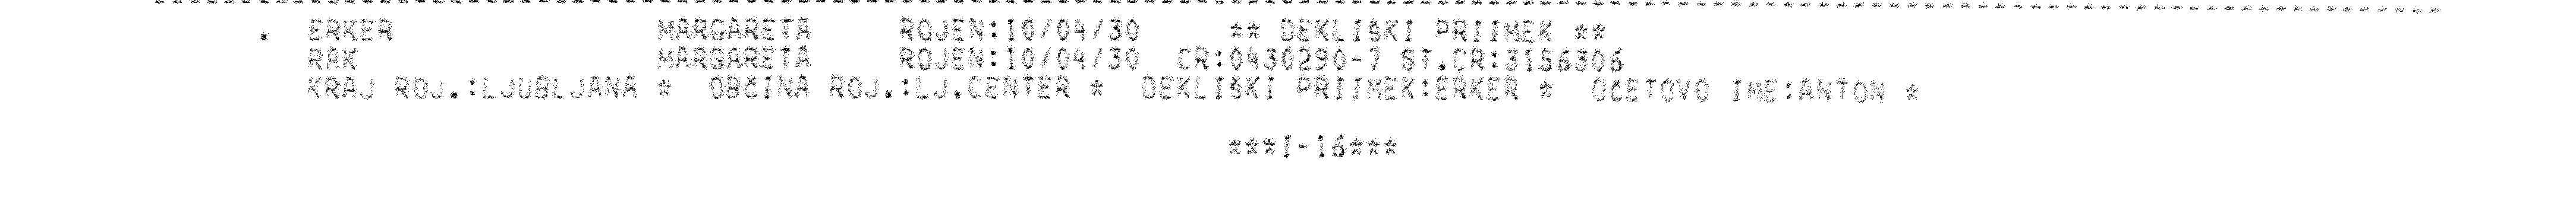 . ERKER MARGARETA ROJEN:10/04/30 ** DEKLIŠKI PRIIMEK **
RAK MARGARETA ROJEN:10/04/30 CR:0430290-7 ST.CR:3156306
KRAJ ROJ.:LJUBLJANA * OBČINA ROJ.:LJ.CENTER * DEKLIŠKI PRIIMEK:ERKER * OČETOVO IME:ANTON *
***I-16***